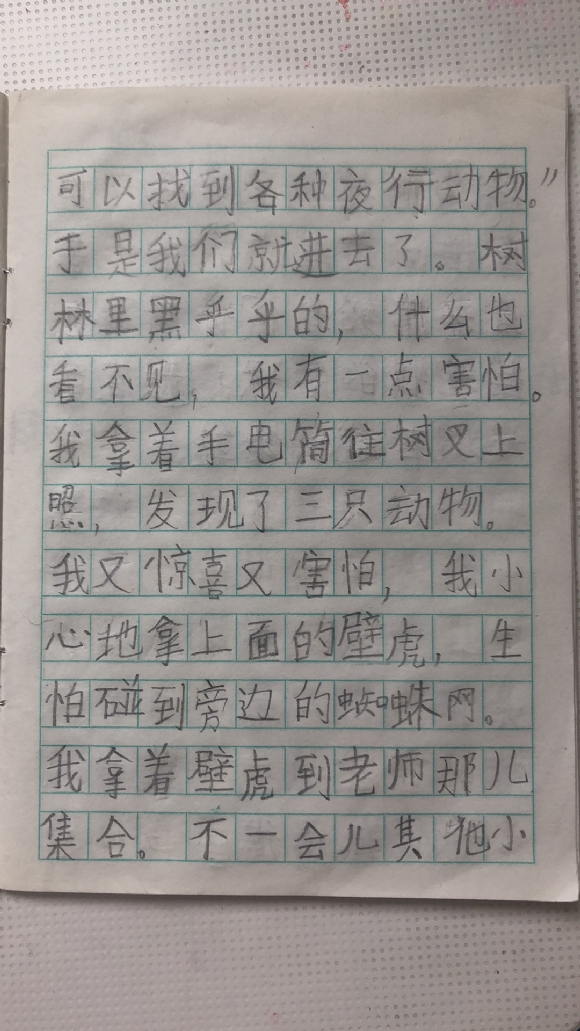 可以找到各种夜行动物。”
于是我们就进去了。树
林里黑乎乎的，什么也
看不见，我有一点害怕。
我拿着手电筒往树叉上
照，发现了三只动物。
我又惊喜又害怕，我小
心地拿上面的壁虎，生
怕碰到旁边的蜘蛛网。
我拿着壁虎到老师那儿
集合。不一会儿其他小